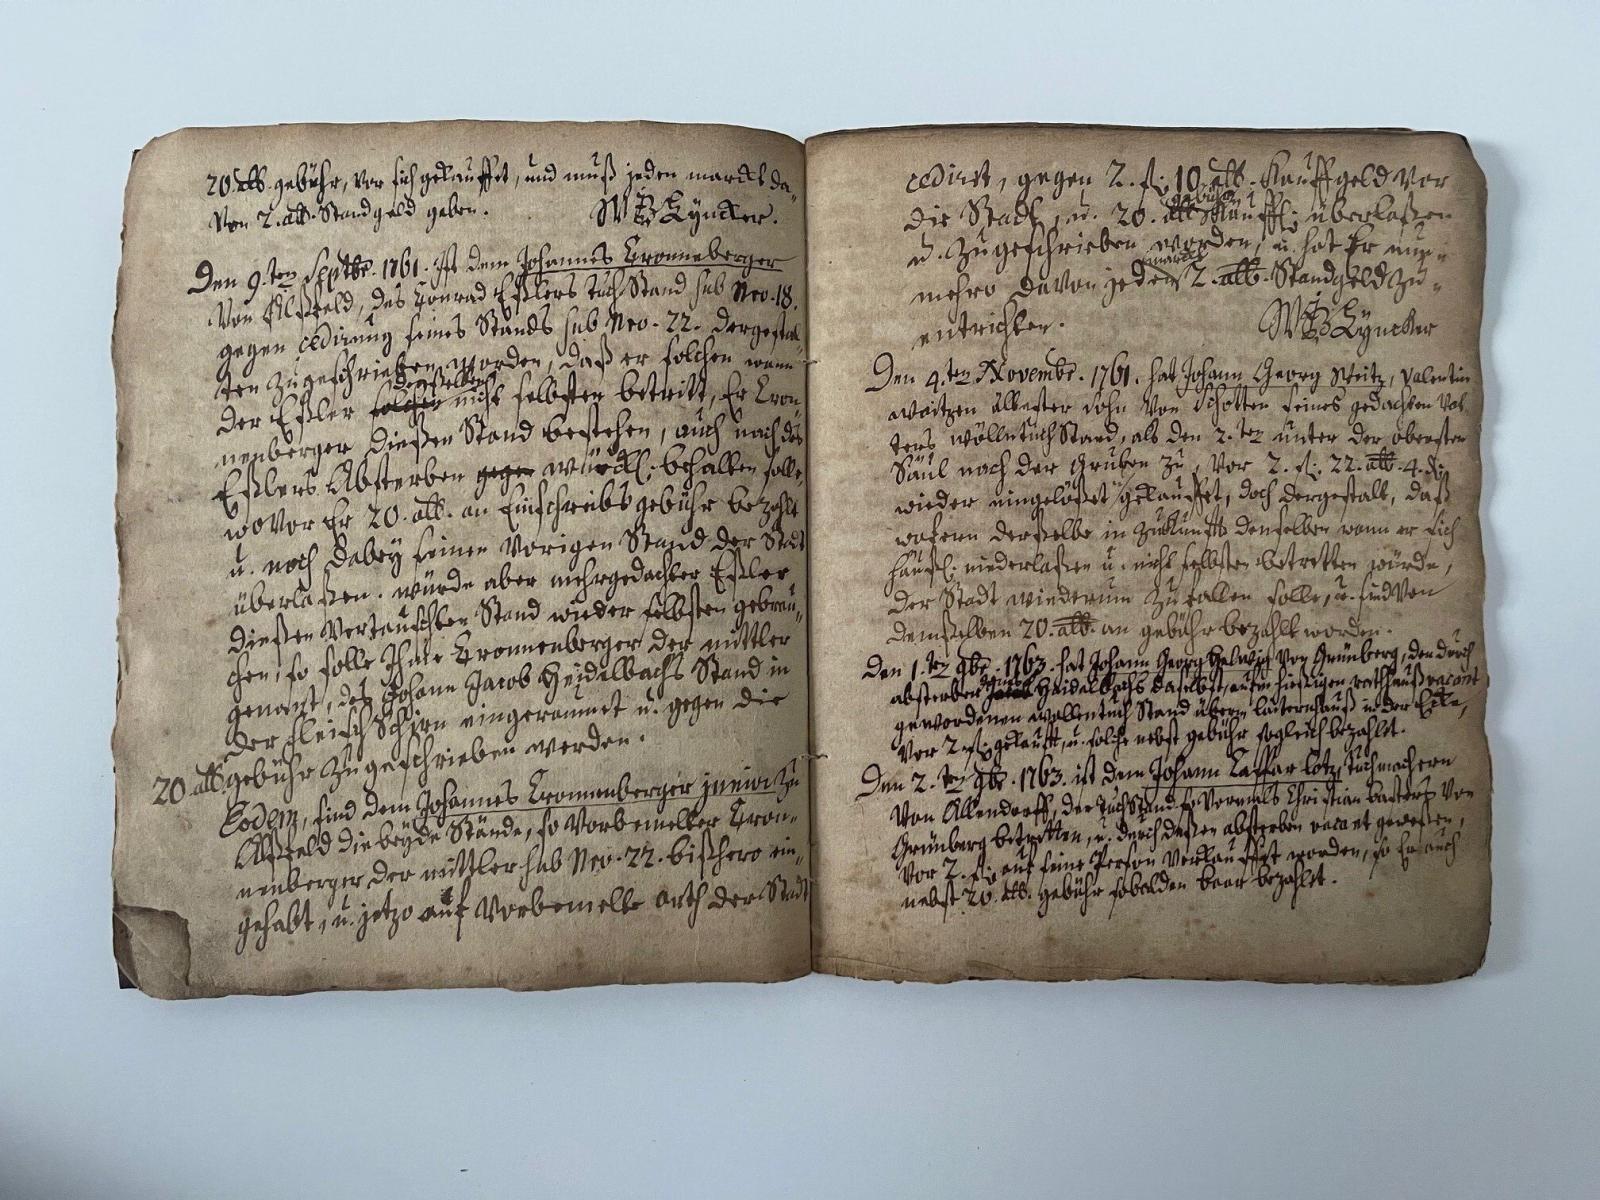 20. alb. gebühr, vor sich gekaufft, und muß jeden marckt da„
von 2. alb. Standgeld geben. WB Lyncker.
Den 9.ten Septbr. 1761. ist dem Johannes Cronneberger
von Alßfeld, des Conrad Eßlers Tuch Stand sub Nro. 18.
gegen cedirung seines Stands sub Nro. 22. dergestal„
ten zugeschrieben worden, daß er solchen wann
der Eßler solchen denselben nicht selbsten betritt, Er Cron„
nenberger dießen Stand bestehen, auch nach des
Eßlers Absterben gegen würckl. behalten solle,
wovor Er 20. alb. an Einschreibsgebühr bezahlt
u. noch dabey seinen vorigen Stand der Stadt
überlaßen. würde aber mehrgedachter Eßler
dießen vertauschten Stand wieder selbsten gebrau„
chen, so solle Ihme Cronnenberger der mittler
genant, des Johann Jacob Heidelbachs Stand in
der Fleisch Schirn eingeraumet u. gegen die
20 alb. gebühr zugeschrieben werden.
Eodem, sind dem Johannes Cronnenberger junior zu
Alßfeld die beyde Stände, so vorbemelter Cron„
nenberger der mittler sub Nro. 22. bißhero ein„
gehabt, u. jetzo auf vorbemelte arth der Stadt
cedirt, gegen 2. fl. 10 alb. Kauffgeld vor
die Stadt, u. 20. alb gebühr Kauffl. überlaßen
u. zugeschrieben worden, u. hat Er nun„
mehro davon jeden marckt 2. alb. Standgeld zu„
entrichten. WB Lyncker
Den 4.ten Novembr. 1761. hat Johann Georg Weitz, Valentin
Weitzen ältester sohn von Schotten seines gedachten Vat„
ters wöllentuch Stand, als den 2.ten unter der obersten
Säul nach der Gruben zu, vor 2. fl. 22. alb. 4. d.
wieder eingelößet gekauffet, doch dergestalt, daß
wofern derselbe in Zukunfft denselben wann er sich
häußl. niederlaßen u. nicht selbsten betretten würde,
der Stadt wiederum zufallen solle, u. sind von
demselben 20. alb. an gebühr bezahlt worden.
Den 1.ten 9br. 1763. hat Johann Georg Helwig von Grünberg, den durch
absterben Heidelbachs daselbst, auf hießigem rathhauß vacant
gewordenen wollentuch Stand überm läuternhauß in der Ecke,
vor 2. fl. gekaufft, u. solche nebst gebühr sogleich bezahlt.
Den 2.ten 9br. 1763. ist dem Johann Caspar Lotz, Tuchmachern
von Allendorff, der Tuch Stand so vormals Christian Basters von
Grünberg betretten, u. durch deßen absterben vacant geweßen,
vor 2. fl. auf seine Person verkaufft worden, so Er auch
nebst 20. alb. gebühr sobalden baar bezahlt.